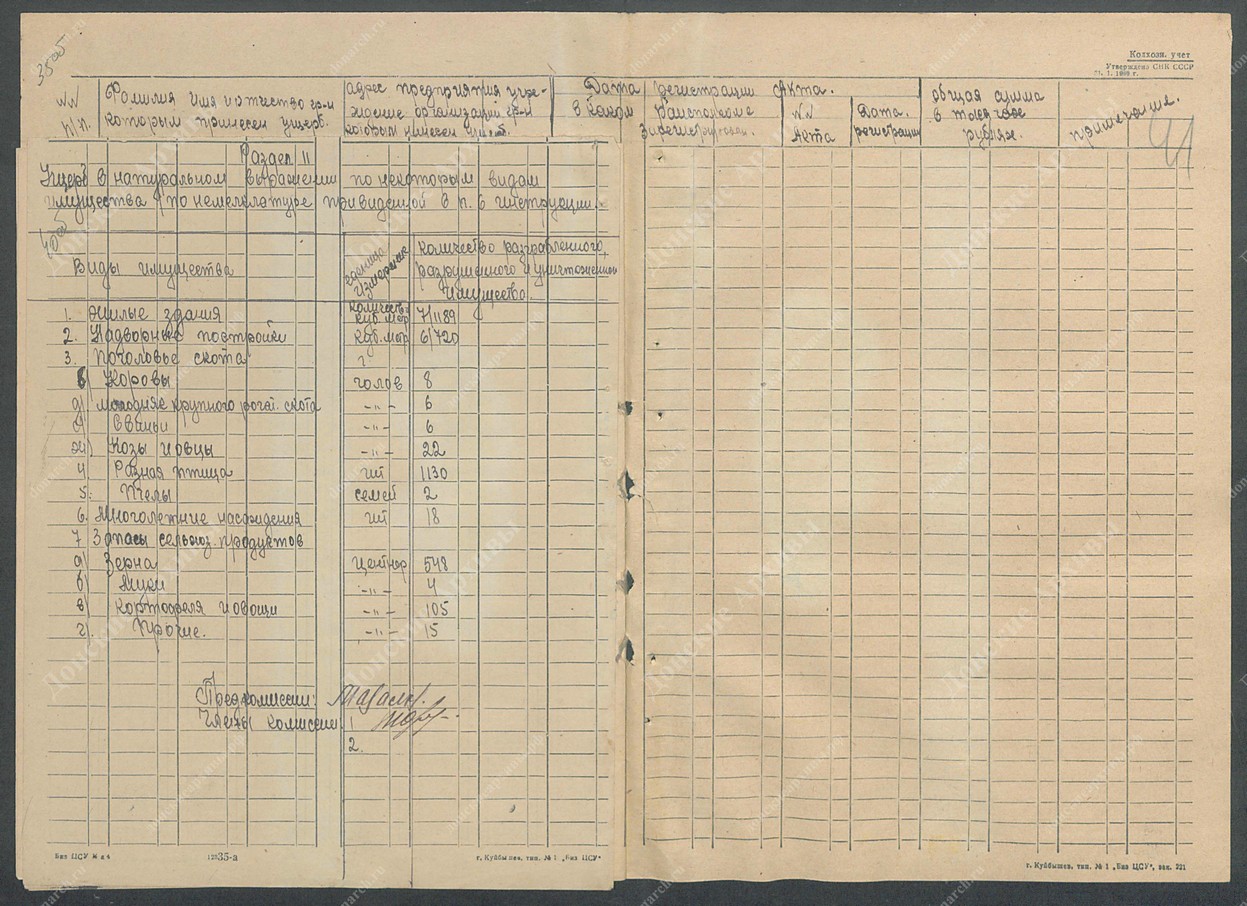 38об
Колхозн. учет
Утвержден СНК СССР
NN п/п.
Фамилия имя и отчество гр-н которым принесен ущерб.
адрес предприятия учреждение организаций гр-н которым нанесен ущерб.
Дата регистрации Акта.
в каком Райисполкоме Зарегистрирован.
NN Акта
Дата. регистрации
общая сумма в тысячae рублях.
примечание.
41
Раздел II
Ущерб в натуральном выражении по некоторым видам
имущества (по неменклатуре приведенной в п. 6 инструкции.
40об
Виды имущества
единица измерения
количество разграбленного,
разрушенного и уничтоженного
имущества.
1. Жилые здания количеств. куб. метр 7/1189
2. Надворные постройки куб. метр 6/720
3. Поголовье скота
в) Коровы голов 8
д) молодняк крупного рогат. скота -"- 6
Свиньи -"- 6
Козы и овцы -"- 22
4 Разная птица шт 1130
5. Пчелы семей 2
6. Многолетние насаждения шт 18
7 Запасы сельхоз. продуктов
а) Зерна центнер 548
б) Муки -"- 4
в) Картофеля и овощи -"- 105
г). Прочие. -"- 15
Предкомиссии:
Члены комиссии 1
2.
Биз ЦСУ
35-а
г. Куйбышев, тип. № 1 „Биз ЦСУ“
г. Куйбышев, тип. № 1 „Биз ЦСУ“, зак. 221
Донские Архивы
donarch.ru